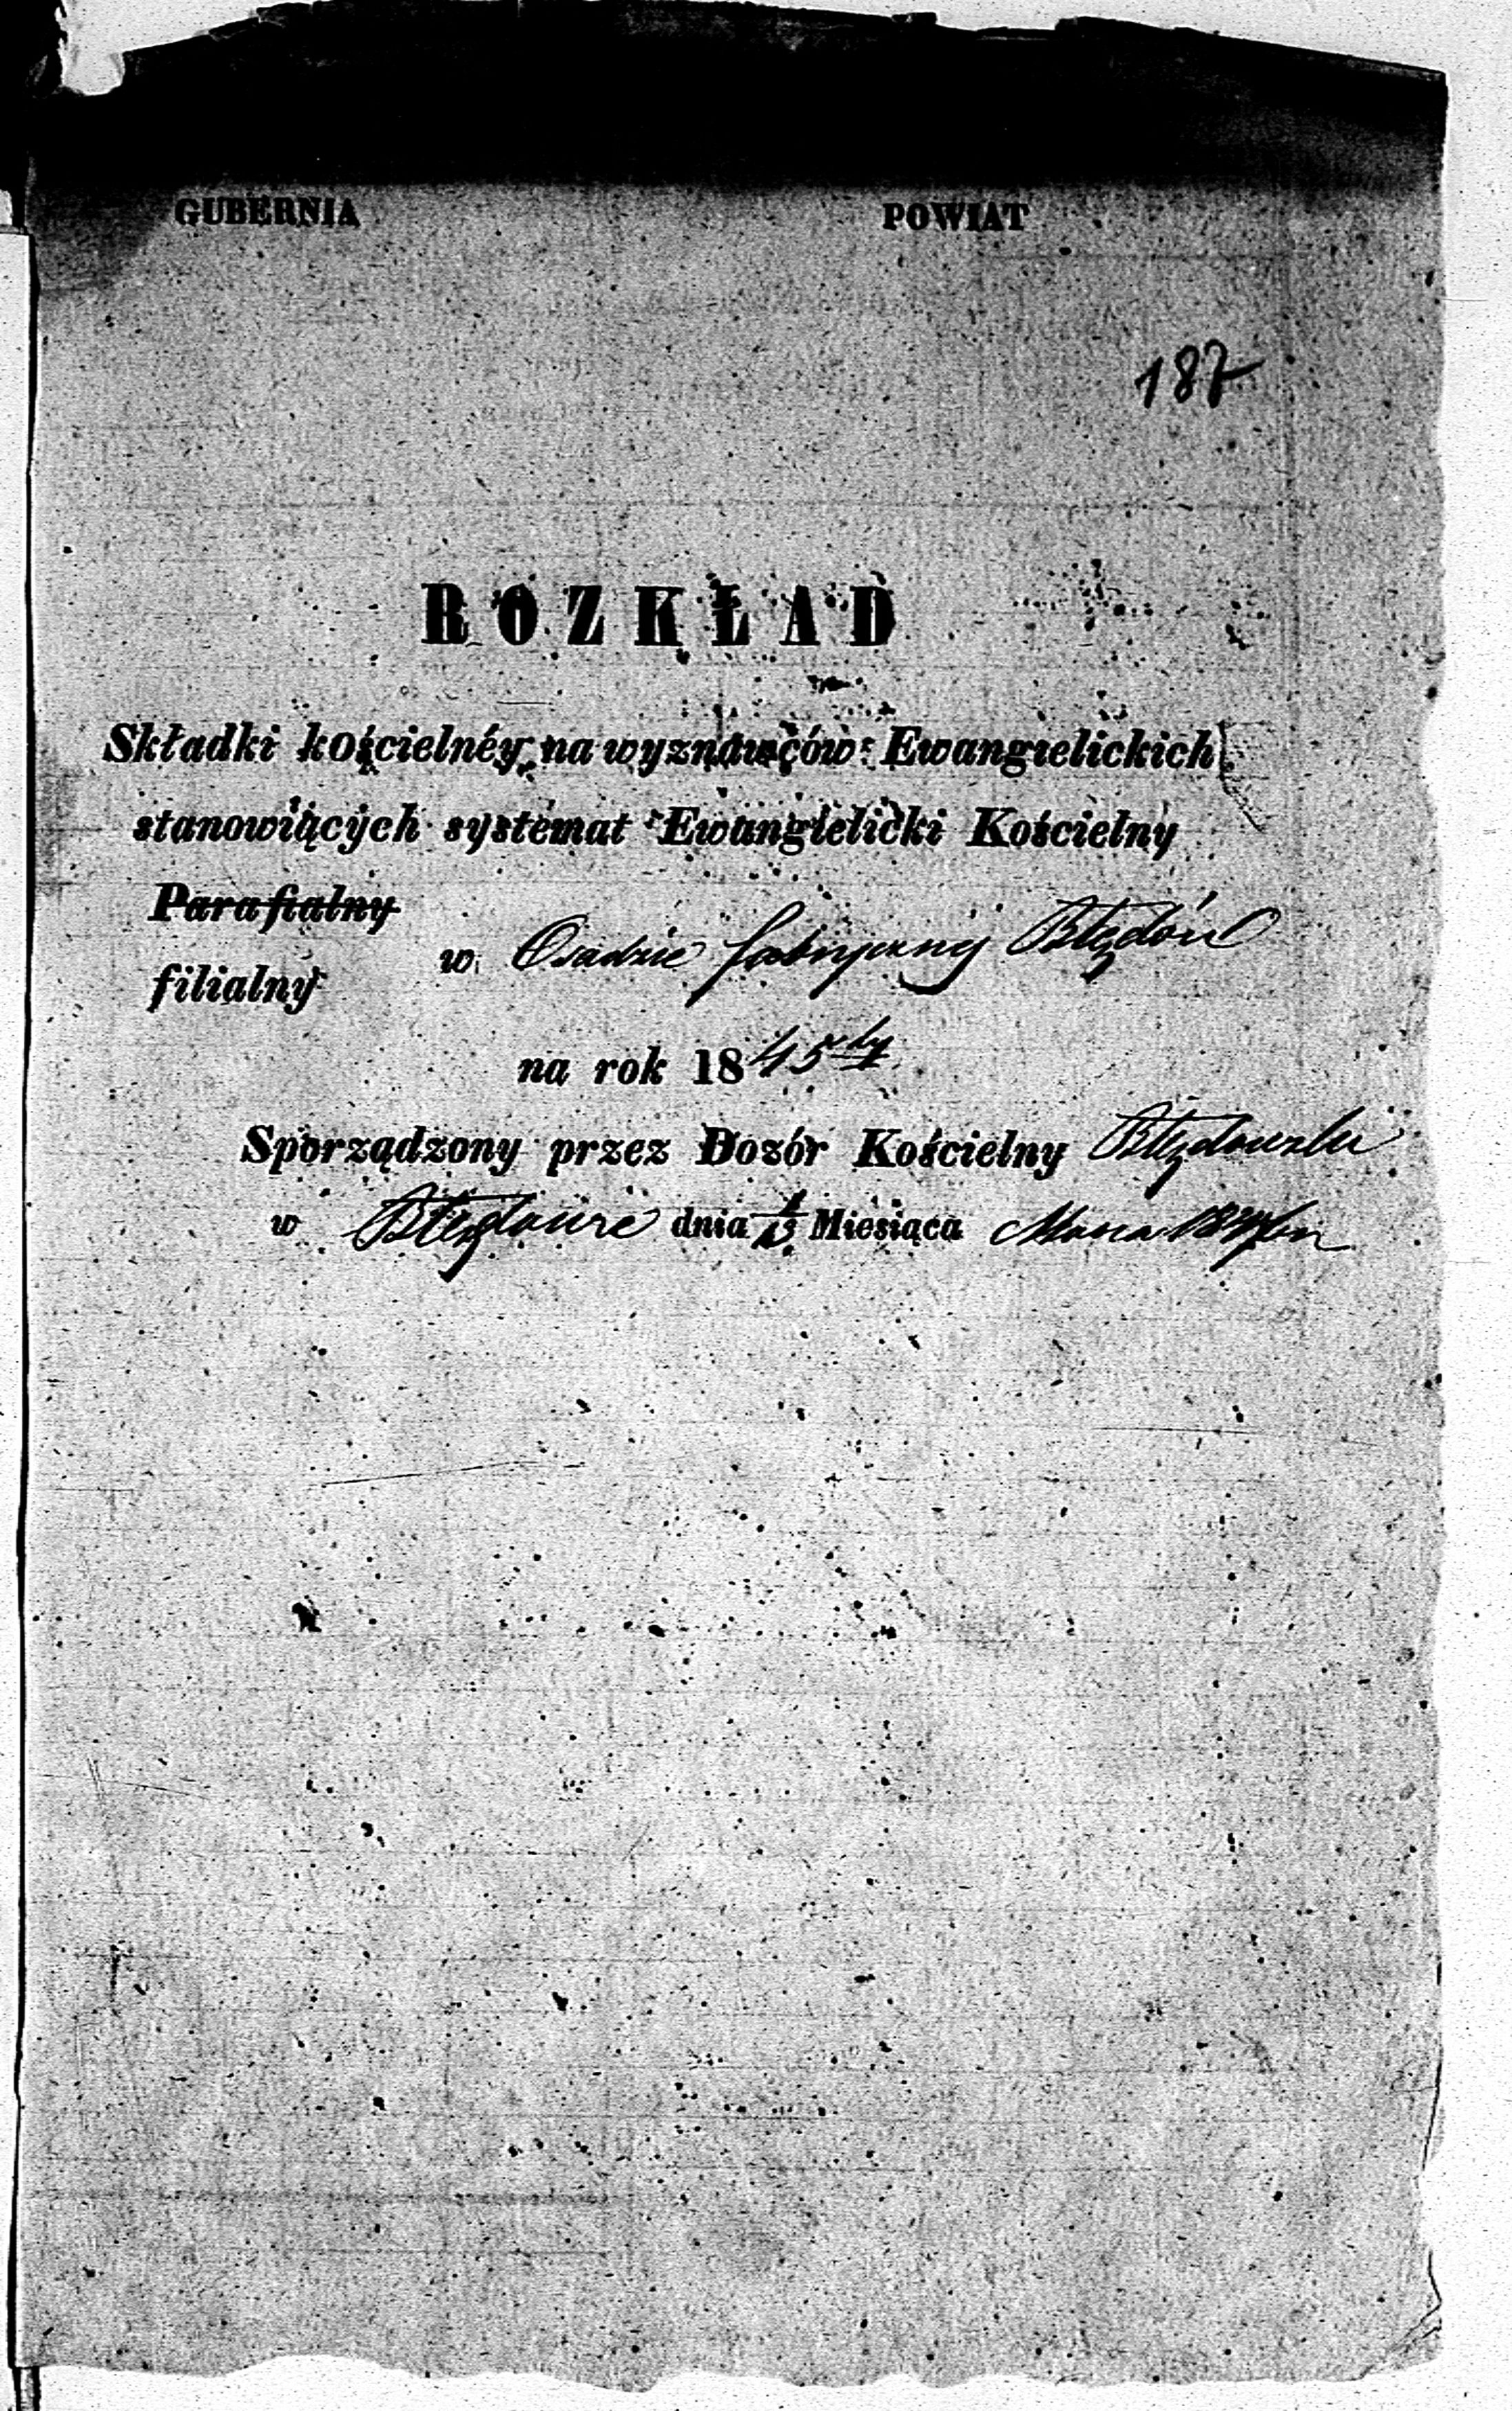 GUBERNIA POWIAT
187
ROZKŁAD
Składki kościelnéy na wyznawców Ewangielickich
stanowiących systemat Ewangielicki Kościelny
Parafialny
filialny w Osadzie fabrycznéj Błędów
na rok 1845ty
Sporządzony przez Dozór Kościelny Błędowski
w Błędowie dnia 1/13 Miesiąca